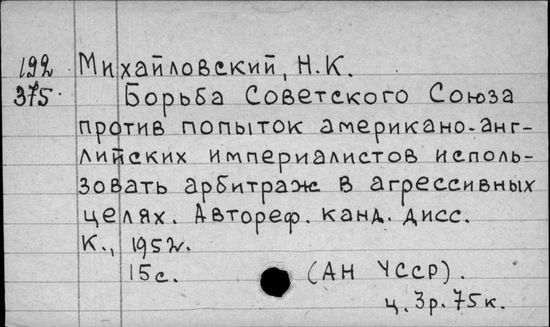 192 Михайловский, Н.К.
375. Борьба Советского Союза
против попыток американо-анг-
лийских империалистов исполь-
зовать арбитраж в агрессивных
целях. Автореф. канд. дисс.
К., 1952.
15с. (АН УССР).
ц. 3р. 75к.